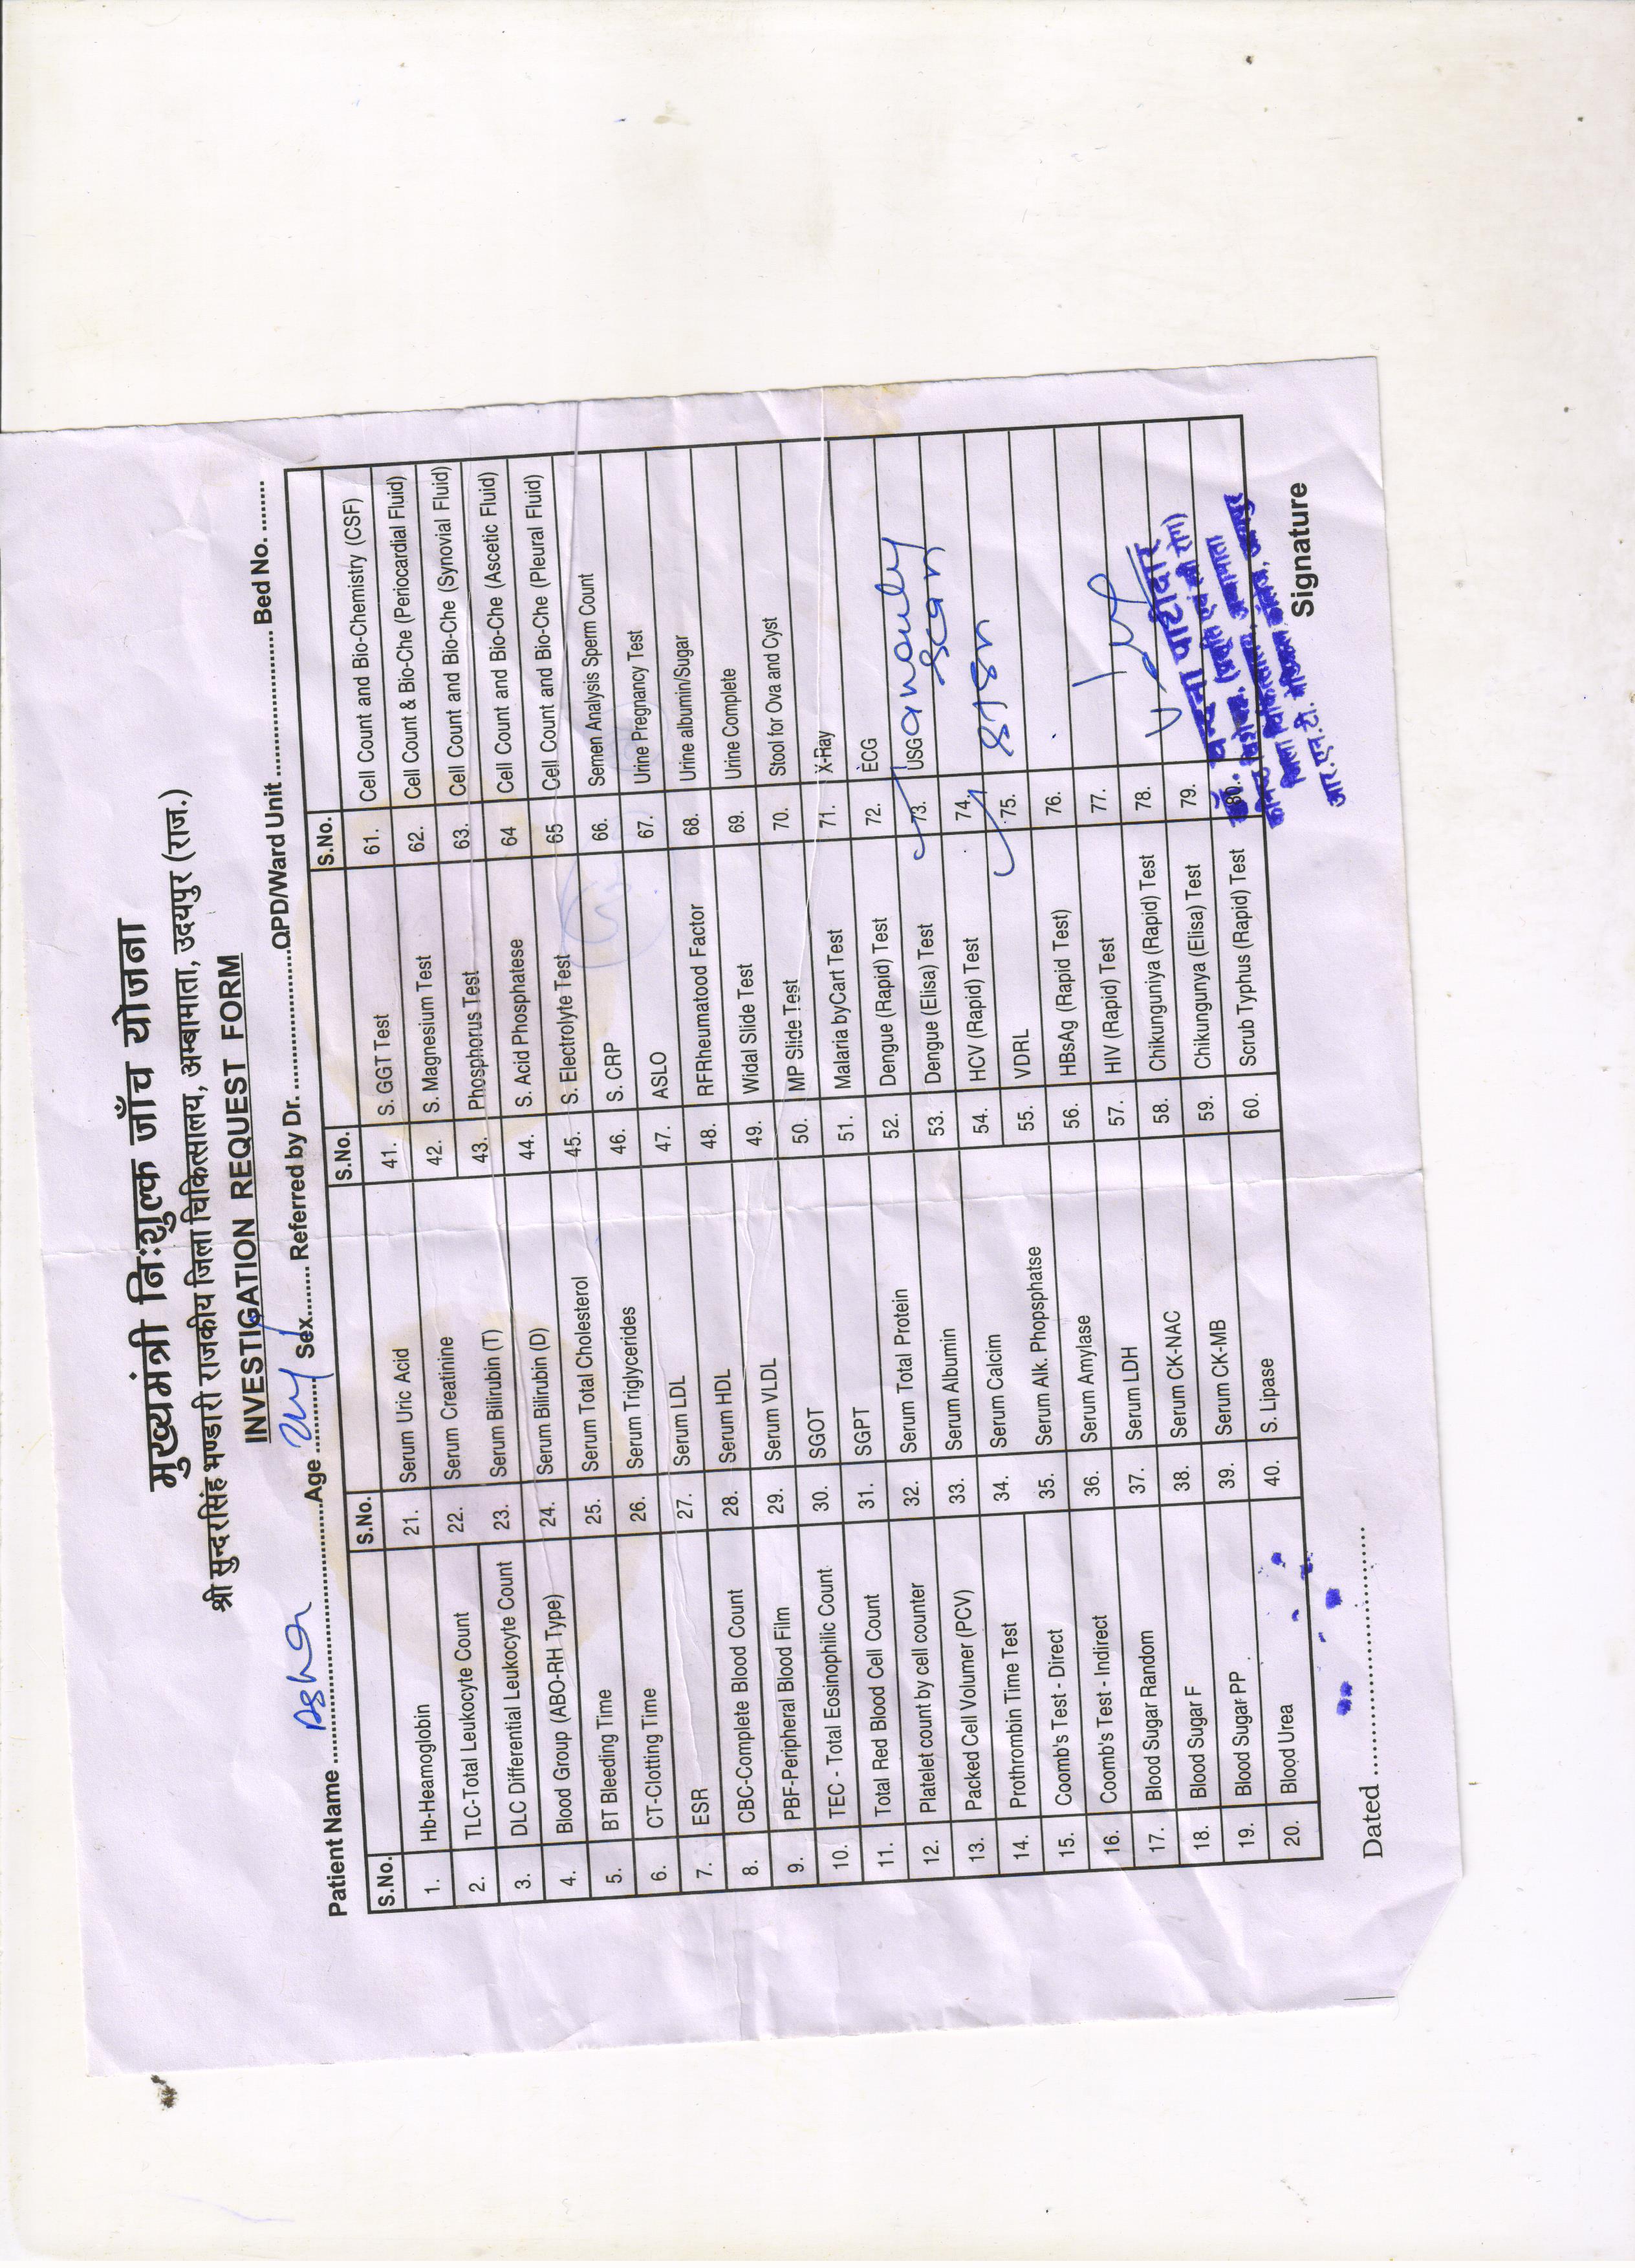 मुख्यमंत्री निःशुल्क जाँच योजना
श्री सुन्दरसिंह भण्डारी राजकीय जिला चिकित्सालय, अम्बामाता, उदयपुर (राज.)
INVESTIGATION REQUEST FORM
Patient Name ........ Asha ........ Age ........ Sex........ Referred by Dr. ........ OPD/Ward Unit ........ Bed No. ........
S.No. S.No. S.No. S.No.
1. Hb-Heamoglobin 21. Serum Uric Acid 41. S. GGT Test 61. Cell Count and Bio-Chemistry (CSF)
2. TLC-Total Leukocyte Count 22. Serum Creatinine 42. S. Magnesium Test 62. Cell Count & Bio-Che (Periocardial Fluid)
3. DLC Differential Leukocyte Count 23. Serum Bilirubin (T) 43. Phosphorus Test 63. Cell Count and Bio-Che (Synovial Fluid)
4. Blood Group (ABO-RH Type) 24. Serum Bilirubin (D) 44. S. Acid Phosphatese 64 Cell Count and Bio-Che (Ascetic Fluid)
5. BT Bleeding Time 25. Serum Total Cholesterol 45. S. Electrolyte Test 65 Cell Count and Bio-Che (Pleural Fluid)
6. CT-Clotting Time 26. Serum Triglycerides 46. S. CRP 66. Semen Analysis Sperm Count
7. ESR 27. Serum LDL 47. ASLO 67. Urine Pregnancy Test
8. CBC-Complete Blood Count 28. Serum HDL 48. RFRheumatood Factor 68. Urine albumin/Sugar
9. PBF-Peripheral Blood Film 29. Serum VLDL 49. Widal Slide Test 69. Urine Complete
10. TEC - Total Eosinophilic Count 30. SGOT 50. MP Slide Test 70. Stool for Ova and Cyst
11. Total Red Blood Cell Count 31. SGPT 51. Malaria byCart Test 71. X-Ray
12. Platelet count by cell counter 32. Serum Total Protein 52. Dengue (Rapid) Test 72. ECG
13. Packed Cell Volumer (PCV) 33. Serum Albumin 53. Dengue (Elisa) Test 73. USG anomaly scan
14. Prothrombin Time Test 34. Serum Calcim 54. HCV (Rapid) Test 74.
15. Coomb's Test - Direct 35. Serum Alk. Phopsphatse 55. VDRL 75.
16. Coomb's Test - Indirect 36. Serum Amylase 56. HBsAg (Rapid Test) 76.
17. Blood Sugar Random 37. Serum LDH 57. HIV (Rapid) Test 77.
18. Blood Sugar F 38. Serum CK-NAC 58. Chikunguniya (Rapid) Test 78.
19. Blood Sugar PP 39. Serum CK-MB 59. Chikungunya (Elisa) Test 79.
20. Blood Urea 40. S. Lipase 60. Scrub Typhus (Rapid) Test 80.
डॉ. वन्दना पाटीदार
कनिष्ठ विशेषज्ञ, (प्रसूति एवं स्त्री रोग)
जिला चिकित्सालय, अम्बामाता
आर.एन.टी. मेडिकल कॉलेज, उदयपुर
Dated ........ Signature